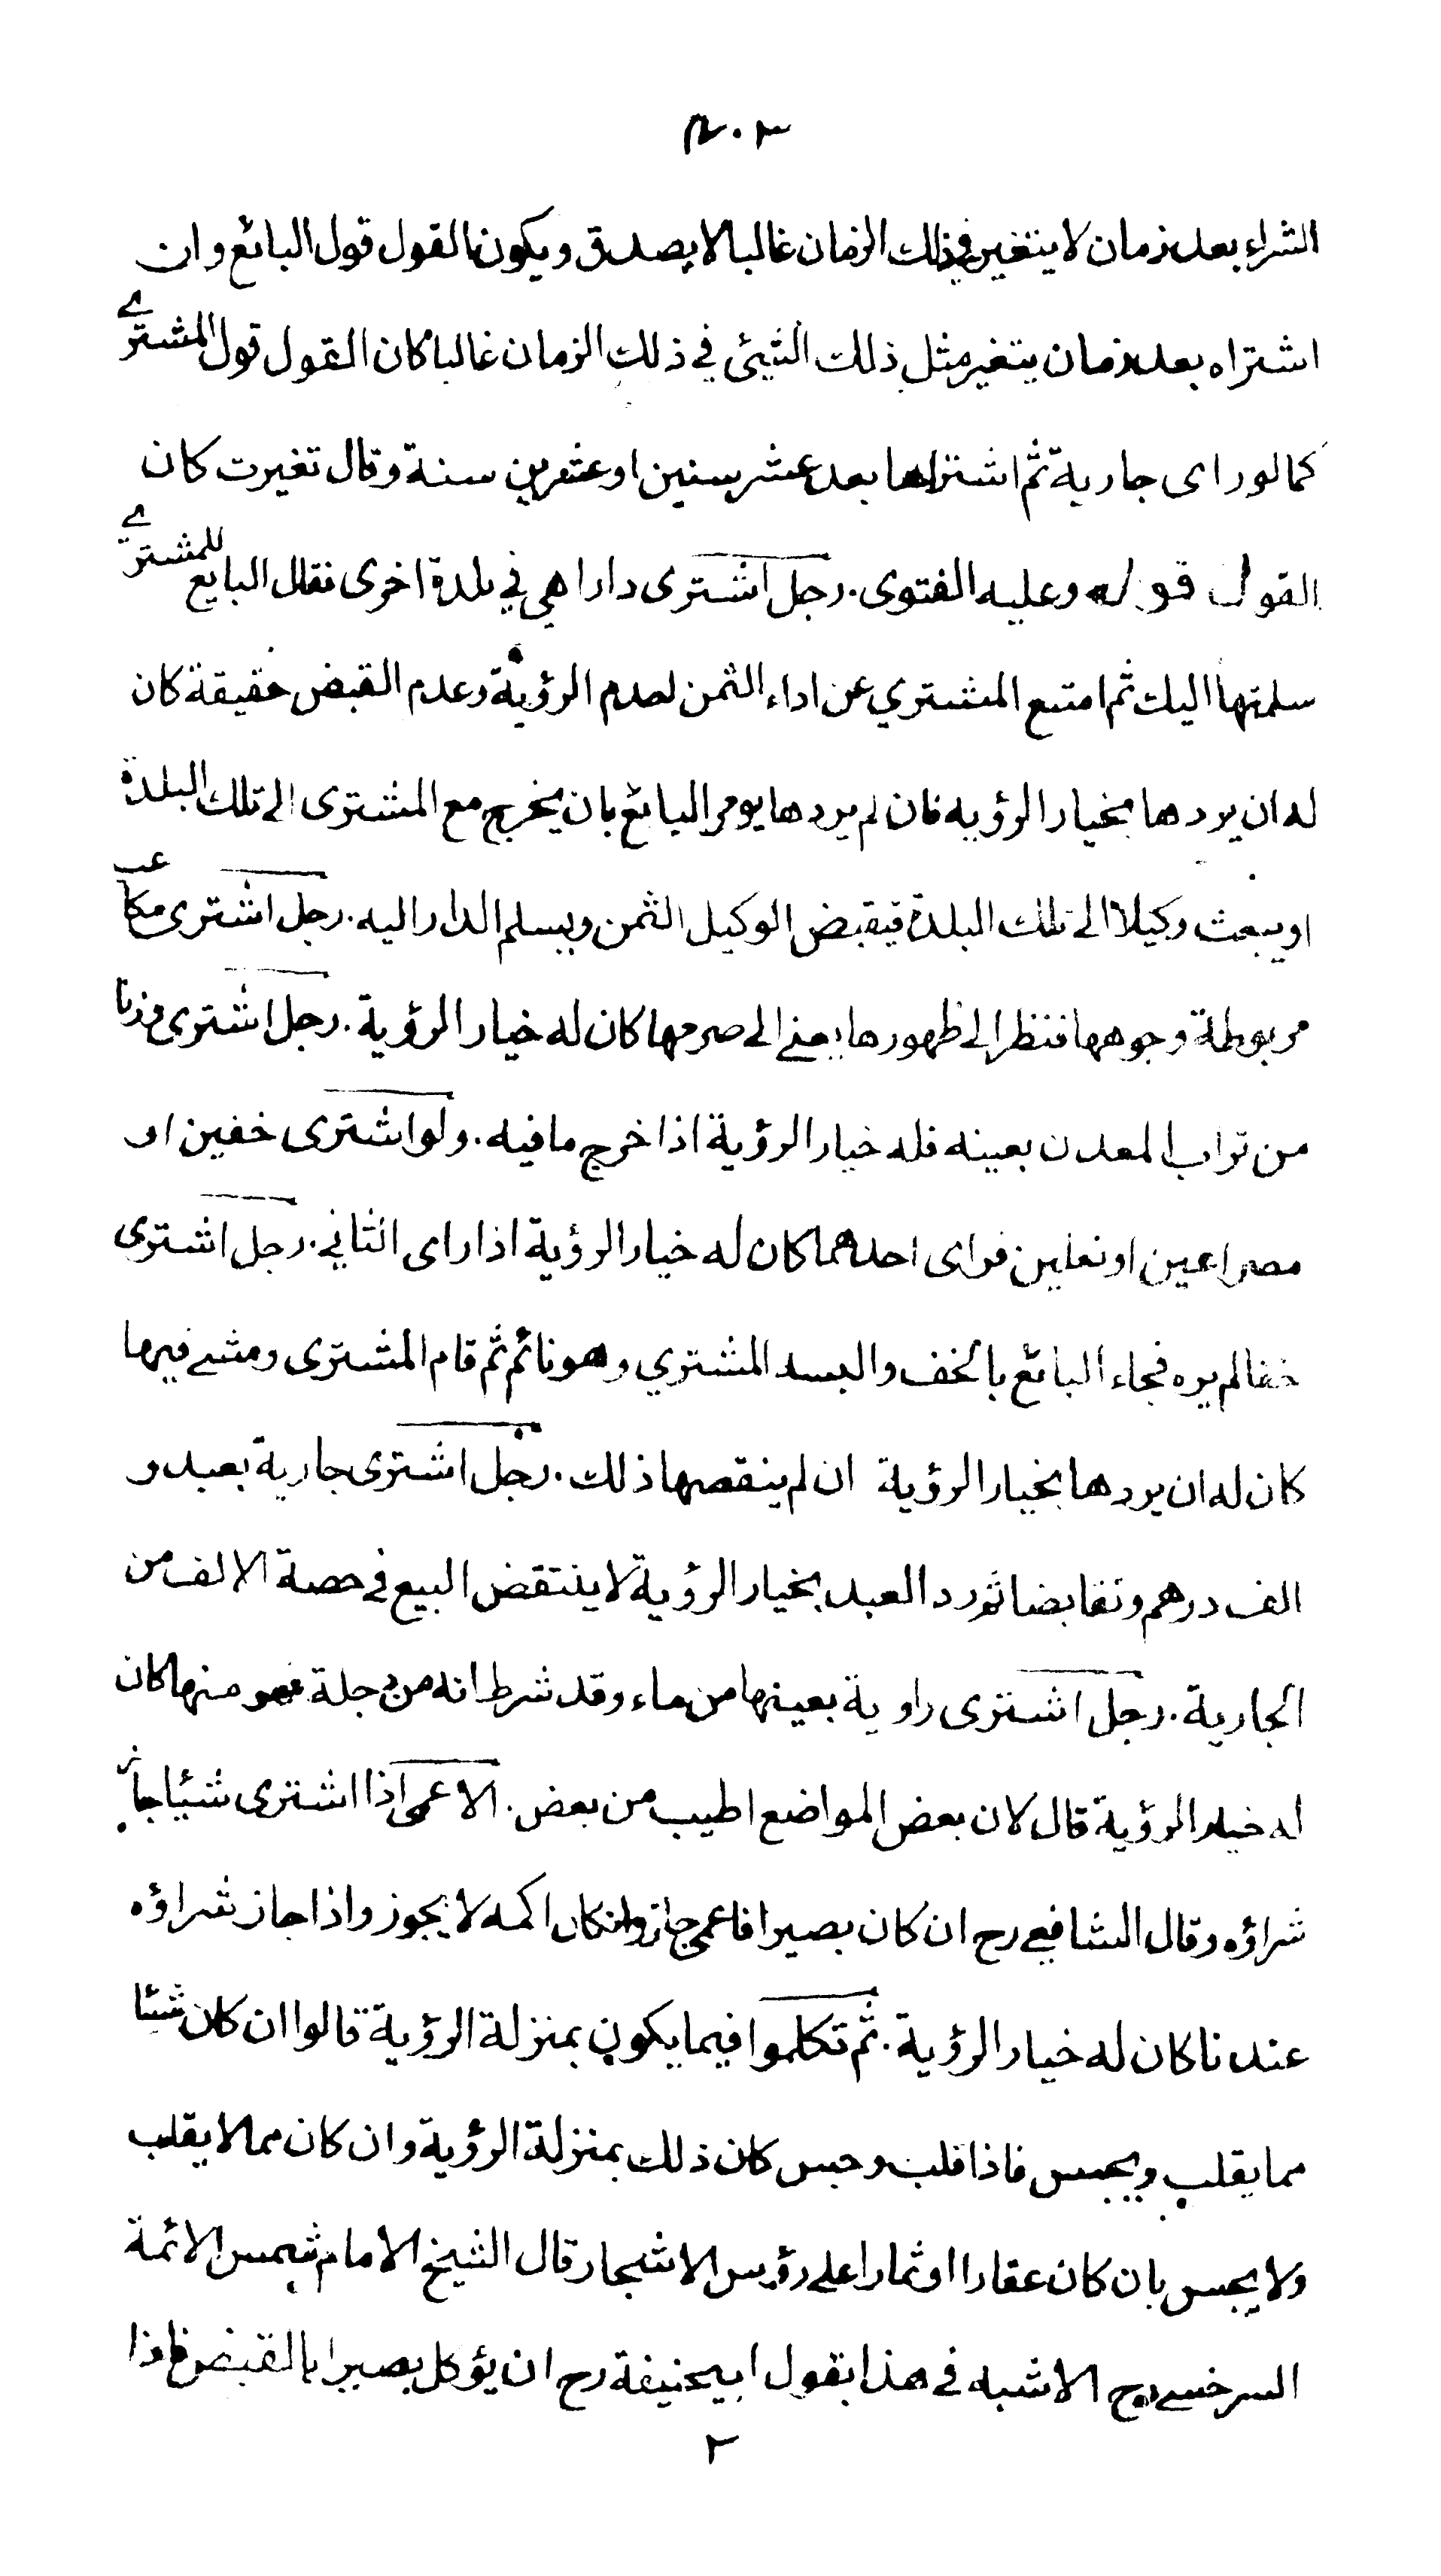 ٣٠٢
الشراء بعد زمان لا يتغير في ذلك الزمان غالبا لا يصدق ويكون القول قول البائع وان
اشتراه بعد زمان يتغير مثل ذلك الشيئ في ذلك الزمان غالبا كان القول قول المشتري
كما لو راى جارية ثم اشتراها بعد عشر سنين او عشرين سنة وقال تغيرت كان
القول قوله وعليه الفتوى . رجل اشترى دارا هي في بلدة اخرى فقال البايع للمشتري
سلمتها اليك ثم امتنع المشتري عن اداء الثمن لعدم الرؤية وعدم القبض حقيقة كان
له ان يردها بخيار الرؤيه فان لم يردها يومر البائع بان يخرج مع المشترى الى تلك البلدة
او يبعث وكيلا الى تلك البلدة فيقبض الوكيل الثمن ويسلم الدار اليه . رجل اشترى مكاعب
مربوطة وجوهها فنظر الى ظهورها يعني الى صرمها كان له خيار الرؤية . رجل اشترى وزنا
من تراب المعدن بعينه فله خيار الرؤية اذا خرج ما فيه . ولو اشترى خفين او
مصراعين او نعلين فراى احدهما كان له خيار الرؤية اذا راى الثاني . رجل اشترى
خفا لم يره فجاء البائع بالخف والبسه المشتري وهو نائم ثم قام المشترى ومشى فيها
كان له ان يردها بخيار الرؤية ان لم ينقصها ذلك . رجل اشترى جارية بعبد و
الف درهم وتقابضا ثم رد العبد بخيار الرؤية لا ينتقض البيع في حصة الالف من
الجارية . رجل اشترى راوية بعينها من ماء وقد شرط انه من دجلة فهو منها كان
له خيار الرؤية قال لان بعض المواضع اطيب من بعض . الاعمى اذا اشترى شيئا جاز
شراؤه وقال الشافعي رح ان كان بصيرا فاعمى جاز وانكان اكمه لا يجوز واذا جاز شراؤه
عندنا كان له خيار الرؤية . ثم تكلموا فيما يكون بمنزلة الرؤية قالوا ان كان شيئا
مما يقلب ويجس فاذا قلب وجس كان ذلك بمنزلة الرؤية وان كان مما لا يقلب
ولا يجس بان كان عقارا او ثمارا على رؤس الاشجار قال الشيخ الامام شمس الائمة
السرخسي رح الاشبه في هذا بقول ابيحنيفة رح ان يؤكل بصيرا بالقبض فاذا
٢